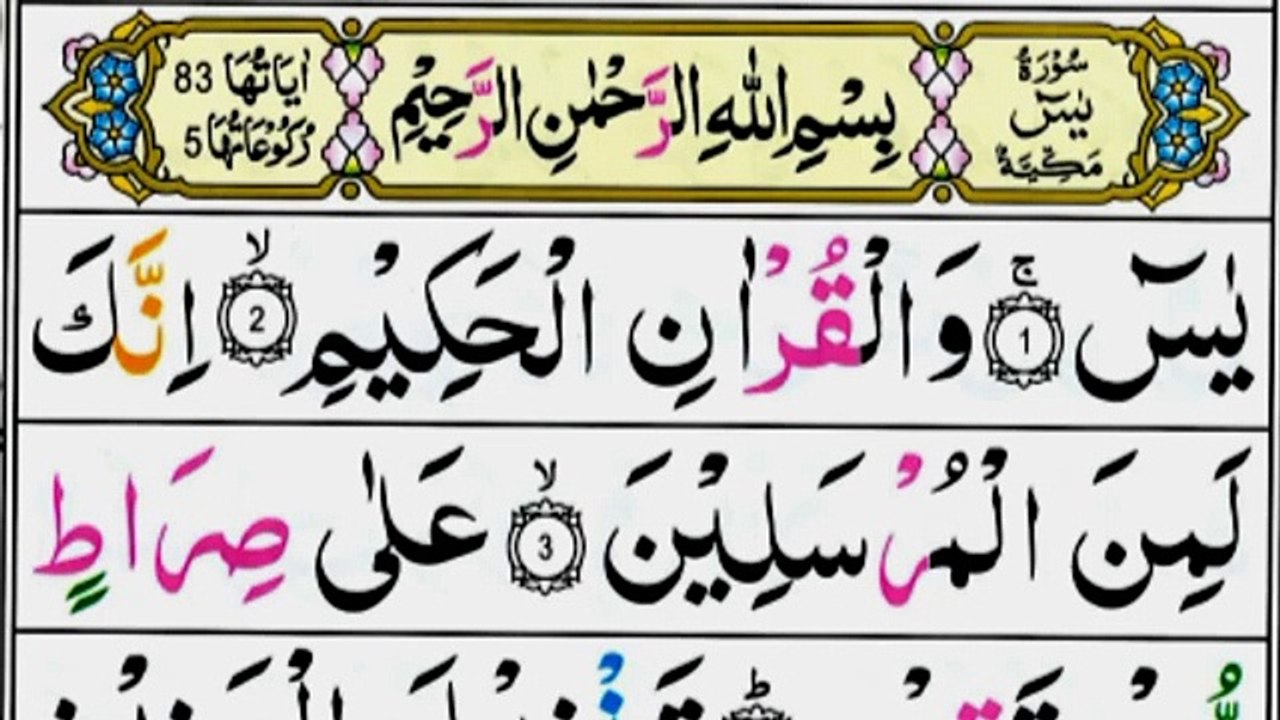 سُوْرَةُ
يٰسٓ
مَكِّيَّةٌ
بِسْمِ اللّٰهِ الرَّحْمٰنِ الرَّحِيْمِ
اٰيَاتُهَا 83
رُكُوْعَاتُهَا 5
يٰسٓ ۚ 1 وَالْقُرْاٰنِ الْحَكِيْمِ ۙ 2 اِنَّكَ
لَمِنَ الْمُرْسَلِيْنَ ۙ 3 عَلٰى صِرَاطٍ